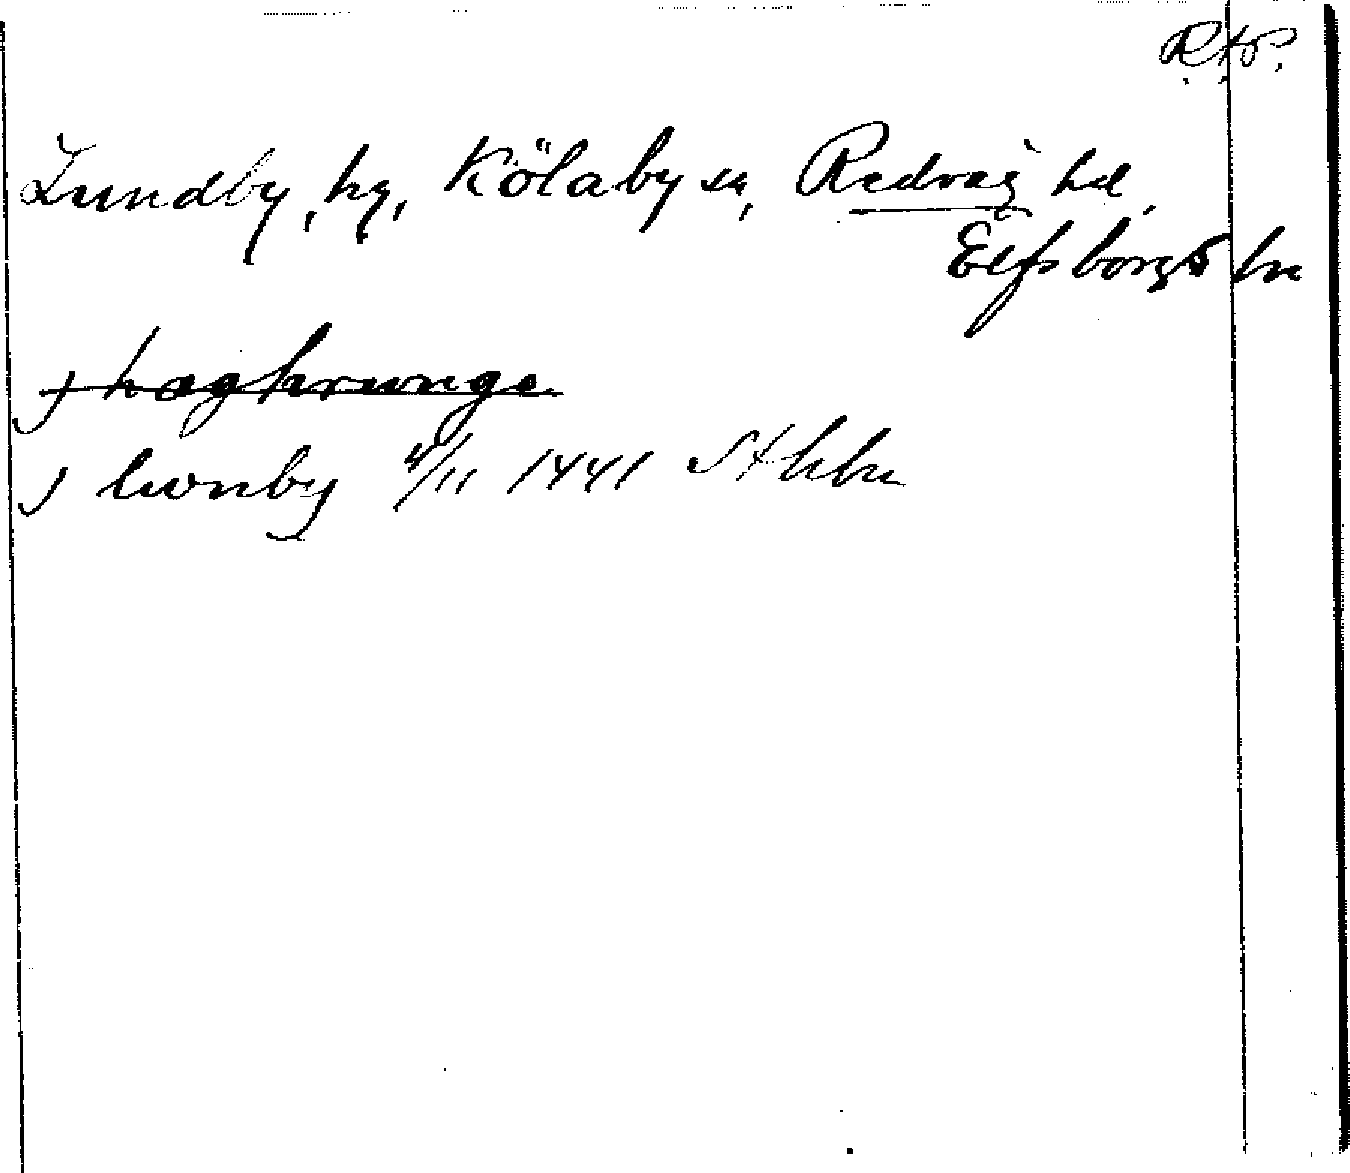 Lundby, hg, Kölaby sn, Redväg hd.
Elfsborgs län
j haghrunge
j lwnby 4/11 1441